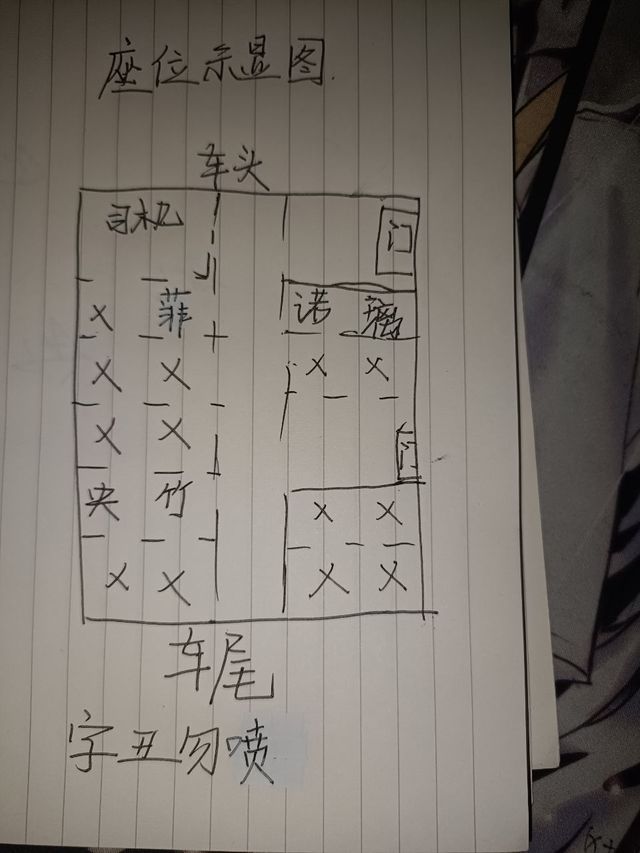 座位示显图.
车头
司机 门
X 菲 诺 璃
X X X X
X X 门
央 竹 X X
X X X X
车尾
字丑勿喷